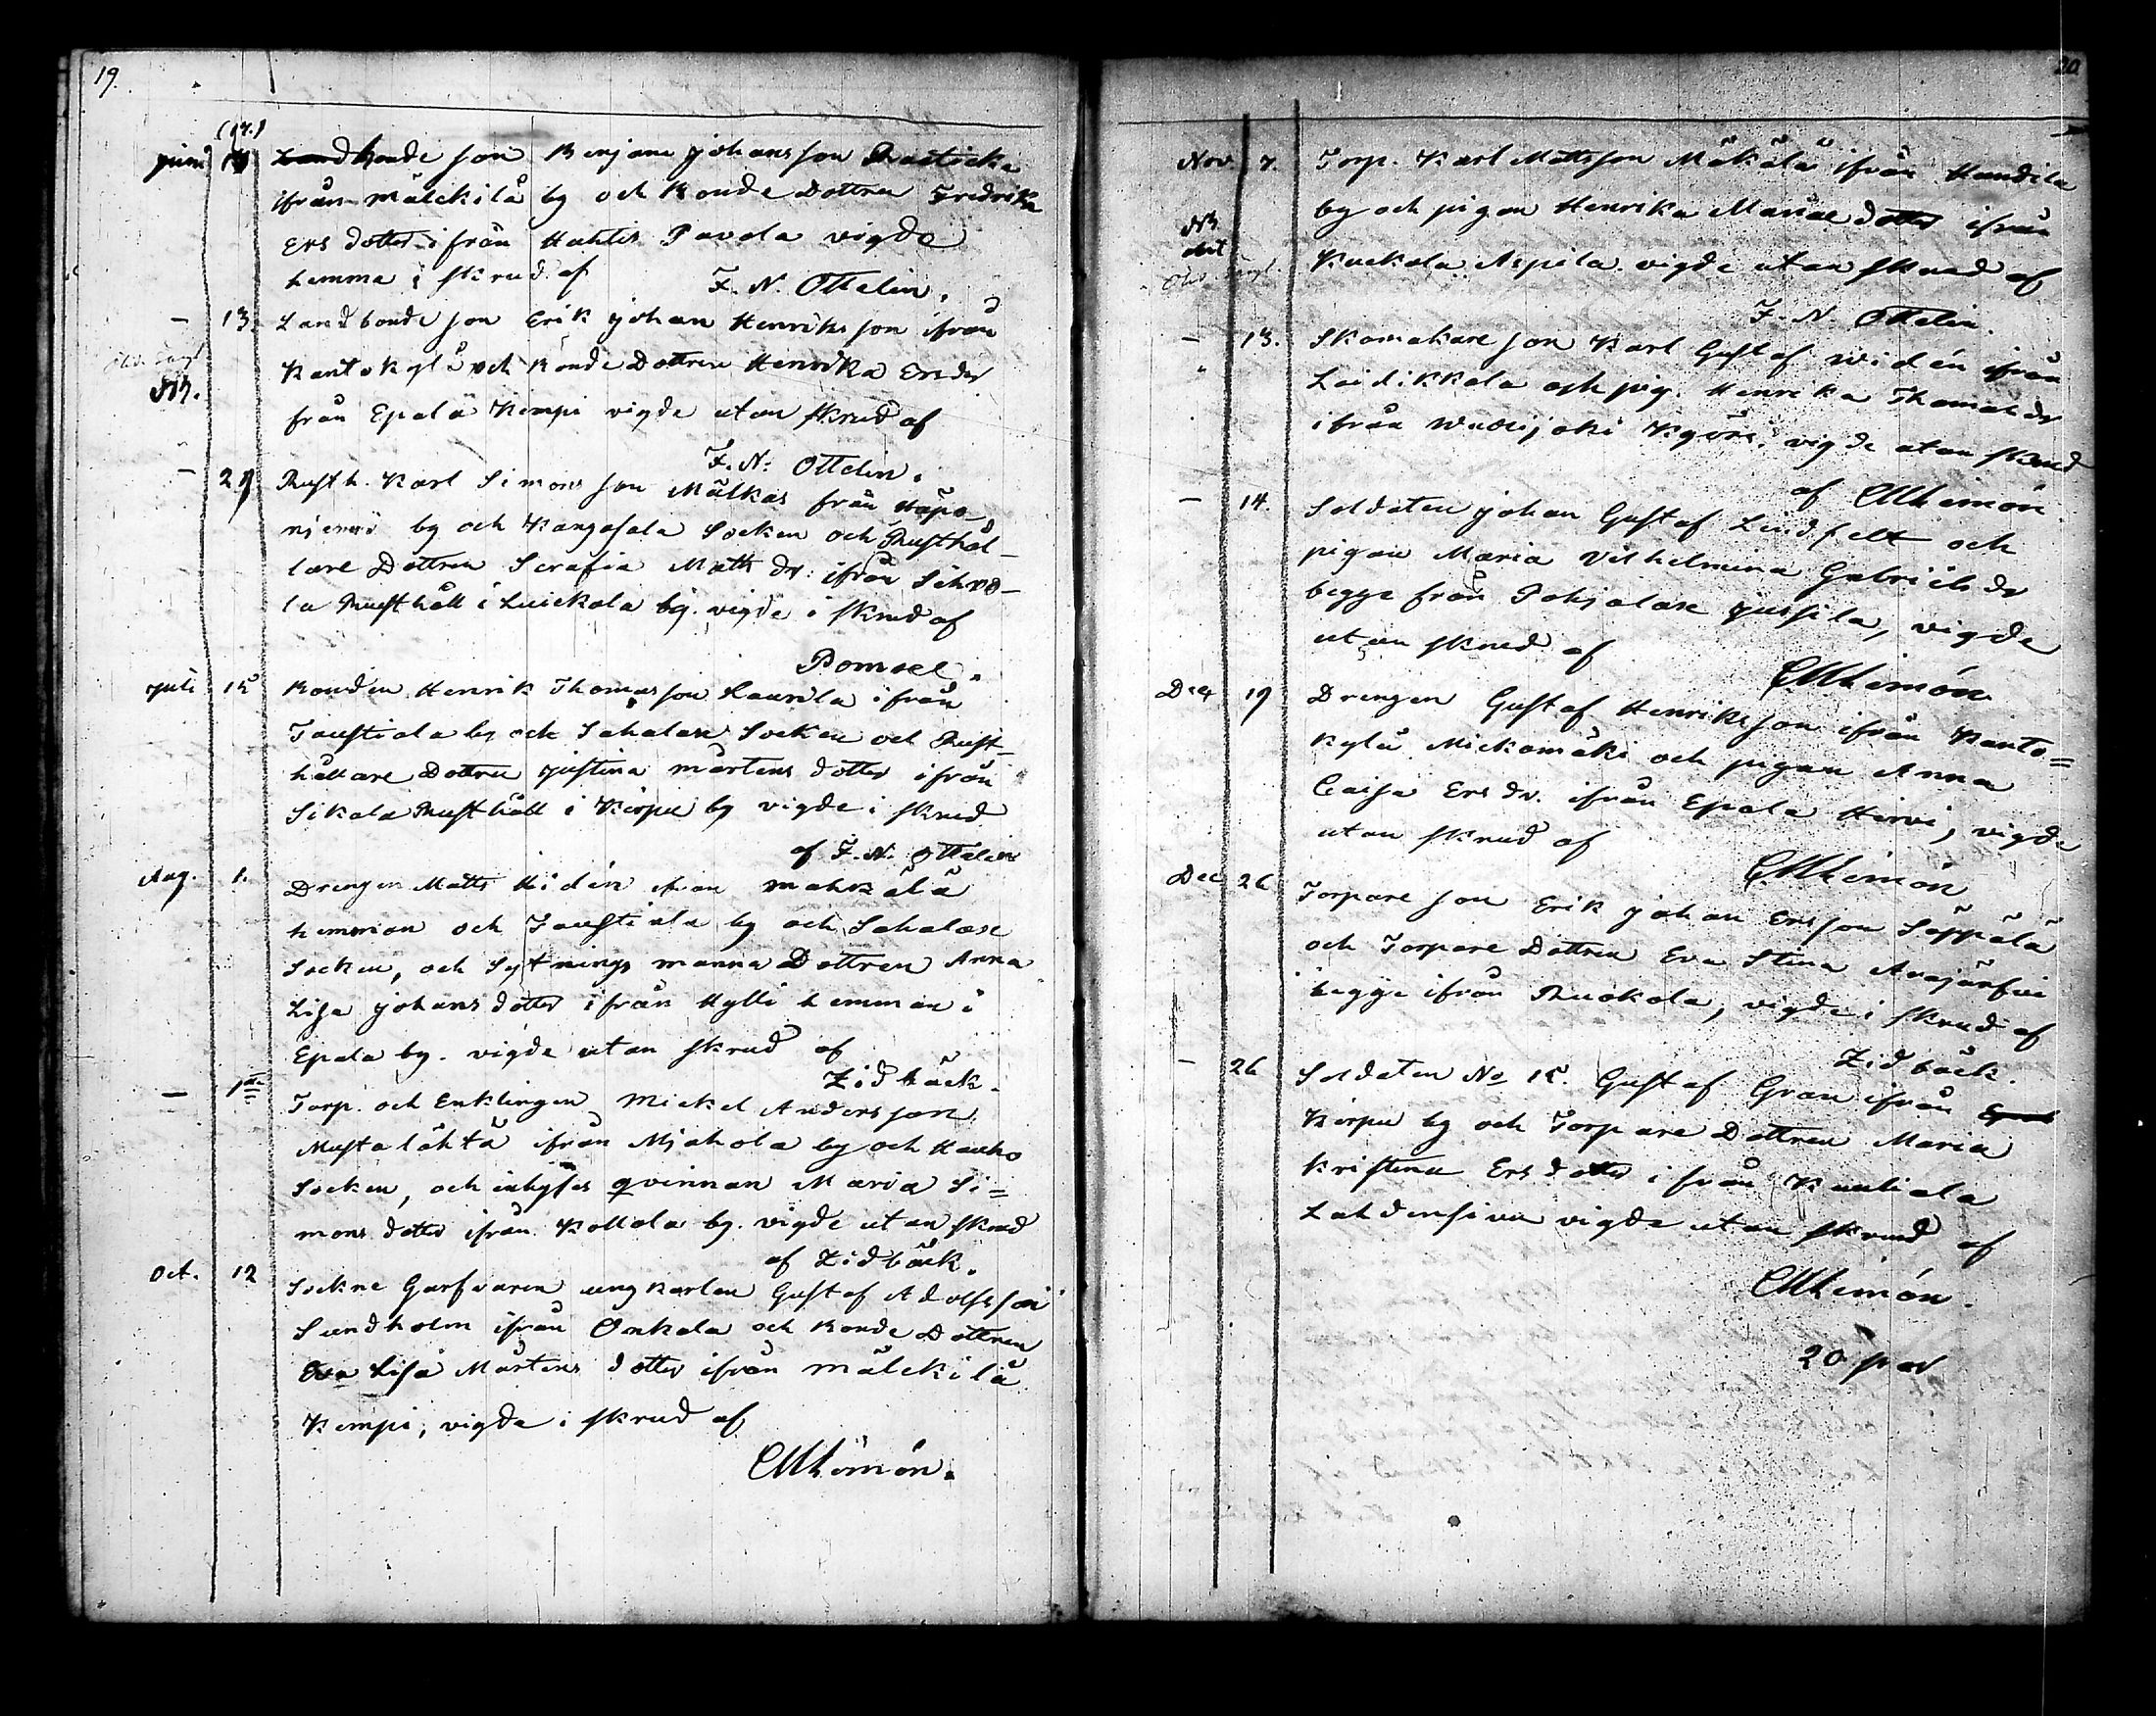 19.
(14.)
juni Landbonde son Benjam Johansson
ifrån Mälckilä by och Bonde Dottren Fredrika
Ersdotter ifrån Hahtis Pavola vigde
hemma i skrud af
F. N. Ottelin.
- 13. Landbonde son Erik Johan Henriksson ifrån
Kantokylä och Bonde Dottren Henrika Ersdr
NB.
från Epalä Kempi vigde utan skrud af
F. N. Ottelin.
- 27 Rusth. Karl Simonsson Mälkas från Hapo
niemi by och Kangasala Socken och Rusthål-
lare Dottren Serafia Matts dr: ifrån Sihvo-
la Rusthåll i Luickola by. vigde i skrud af
juli 15 Bonden Henrik Thomasson Laurila ifrån
Taustiala by och Sahalax Socken och Rust-
hållare Dottren Justina Mårtens dotter ifrån
Sikala Rusthåll i Kirpu by vigde i skrud
af F. N. Ottelin
Aug. 1. Drengen Matts Hidén ifrån Mahkälä
hemman och Taustiala by och Sahalax
Socken, och Sytnings manna Dottren Anna
Lisa Johansdotter ifrån Hylli hemman i
Epala by. vigde utan skrud af
Lidbäck.
- 1de Torp. och Enklingen Mickel Andersson
Mustalähtä ifrån by och Hauho
Socken, och inhyses qvinnan Maria Si=
mons dotter ifrån Kollola by. vigde utan skrud
af Lidbäck.
Oct. 12 Sockne Garfvaren ungkarlen Gustaf Adolfsson
Sundholm ifrån Onkala och Bonde Dottren
Eva Lisa Mårtens dotter ifrån Mälckilä
Kempi, vigde i skrud af
CMLimón.
20
Nov. 7. Torp. Karl Mattsson Mäkälä ifrån Haudila
by och pigan Henrika Mariae dotter ifrån
NB
Kuckola Aspila. vigde utan skrud af
F. N. Ottelin.
- 13. Skomakare son Karl Gustaf Widén ifrån
Laidikkala och pig. Henrika Thomasdr
ifrån Wuolijoki Kyörs. vigde utan skrud
af CMLimón
- 14. Soldaten Johan Gustaf Lindfelt och
pigan Maria Vilhelmina Gabriels dr
begge från Pohjalax Jussila, vigde
utan skrud af
CMLimón
Dec 19 Drengen Gustaf Henriksson ifrån Kanto=
kylä Mickomäki och pigan Anna
Caisa Ers dr. ifrån Epala Hirvi, vigde
utan skrud af
CMLimón
Dec 26 Torpare son Erik Johan Ersson Seppälä
och Torpare Dottren Eva Stina Avajärfvi
begge ifrån Ruokola, vigde i skrud af
Lidbäck.
- 26 Soldaten No 15. Gustaf Gran ifrån
Kirpu by och Torpare Dottren Maria
Kristina Ersdotter ifrån Kautiala
Lahdensivu vigde utan skrud af
CMLimón.
20 par